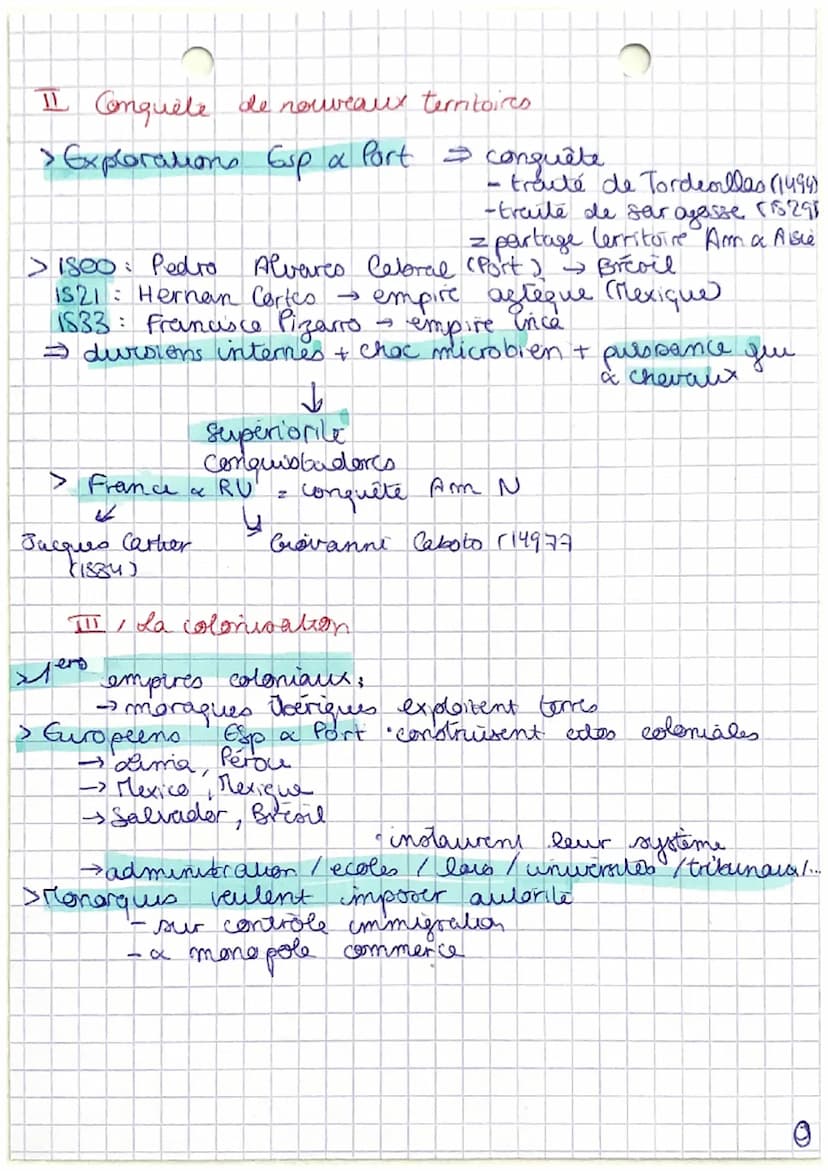 II Conquête de nouveaux territoires
> Explorations Esp & Port ⇒ conquête
- traité de Tordesillas (1494)
- traité de saragosse (1529)
= partage territoire Am & Asie
> 1500 : Pedro Alvares Cabral (Port) → Brésil
1521 : Hernan Cortes → empire aztèque (Mexique)
1533 : Francisco Pizarro → empire inca
⇒ divisions internes + choc microbien + puissance gue
& chevaux
↓
supériorité
conquistadores
> France & RU = conquête Am N
Jacques Cartier Giovanni Caboto (1497)
(1534)
III, La colonisation
> 1ers empires coloniaux :
→ moraques Ibériques exploitent terres
> Européens Esp & Port • construisent cdes coloniales
→ Lima, Pérou
→ Mexico, Mexique
→ Salvador, Brésil
• instaurent leur système
→ administration / ecoles / lois / universités / tribunaux/...
> Monarques veulent imposer autorité
- sur contrôle immigration
- & monopole commerce